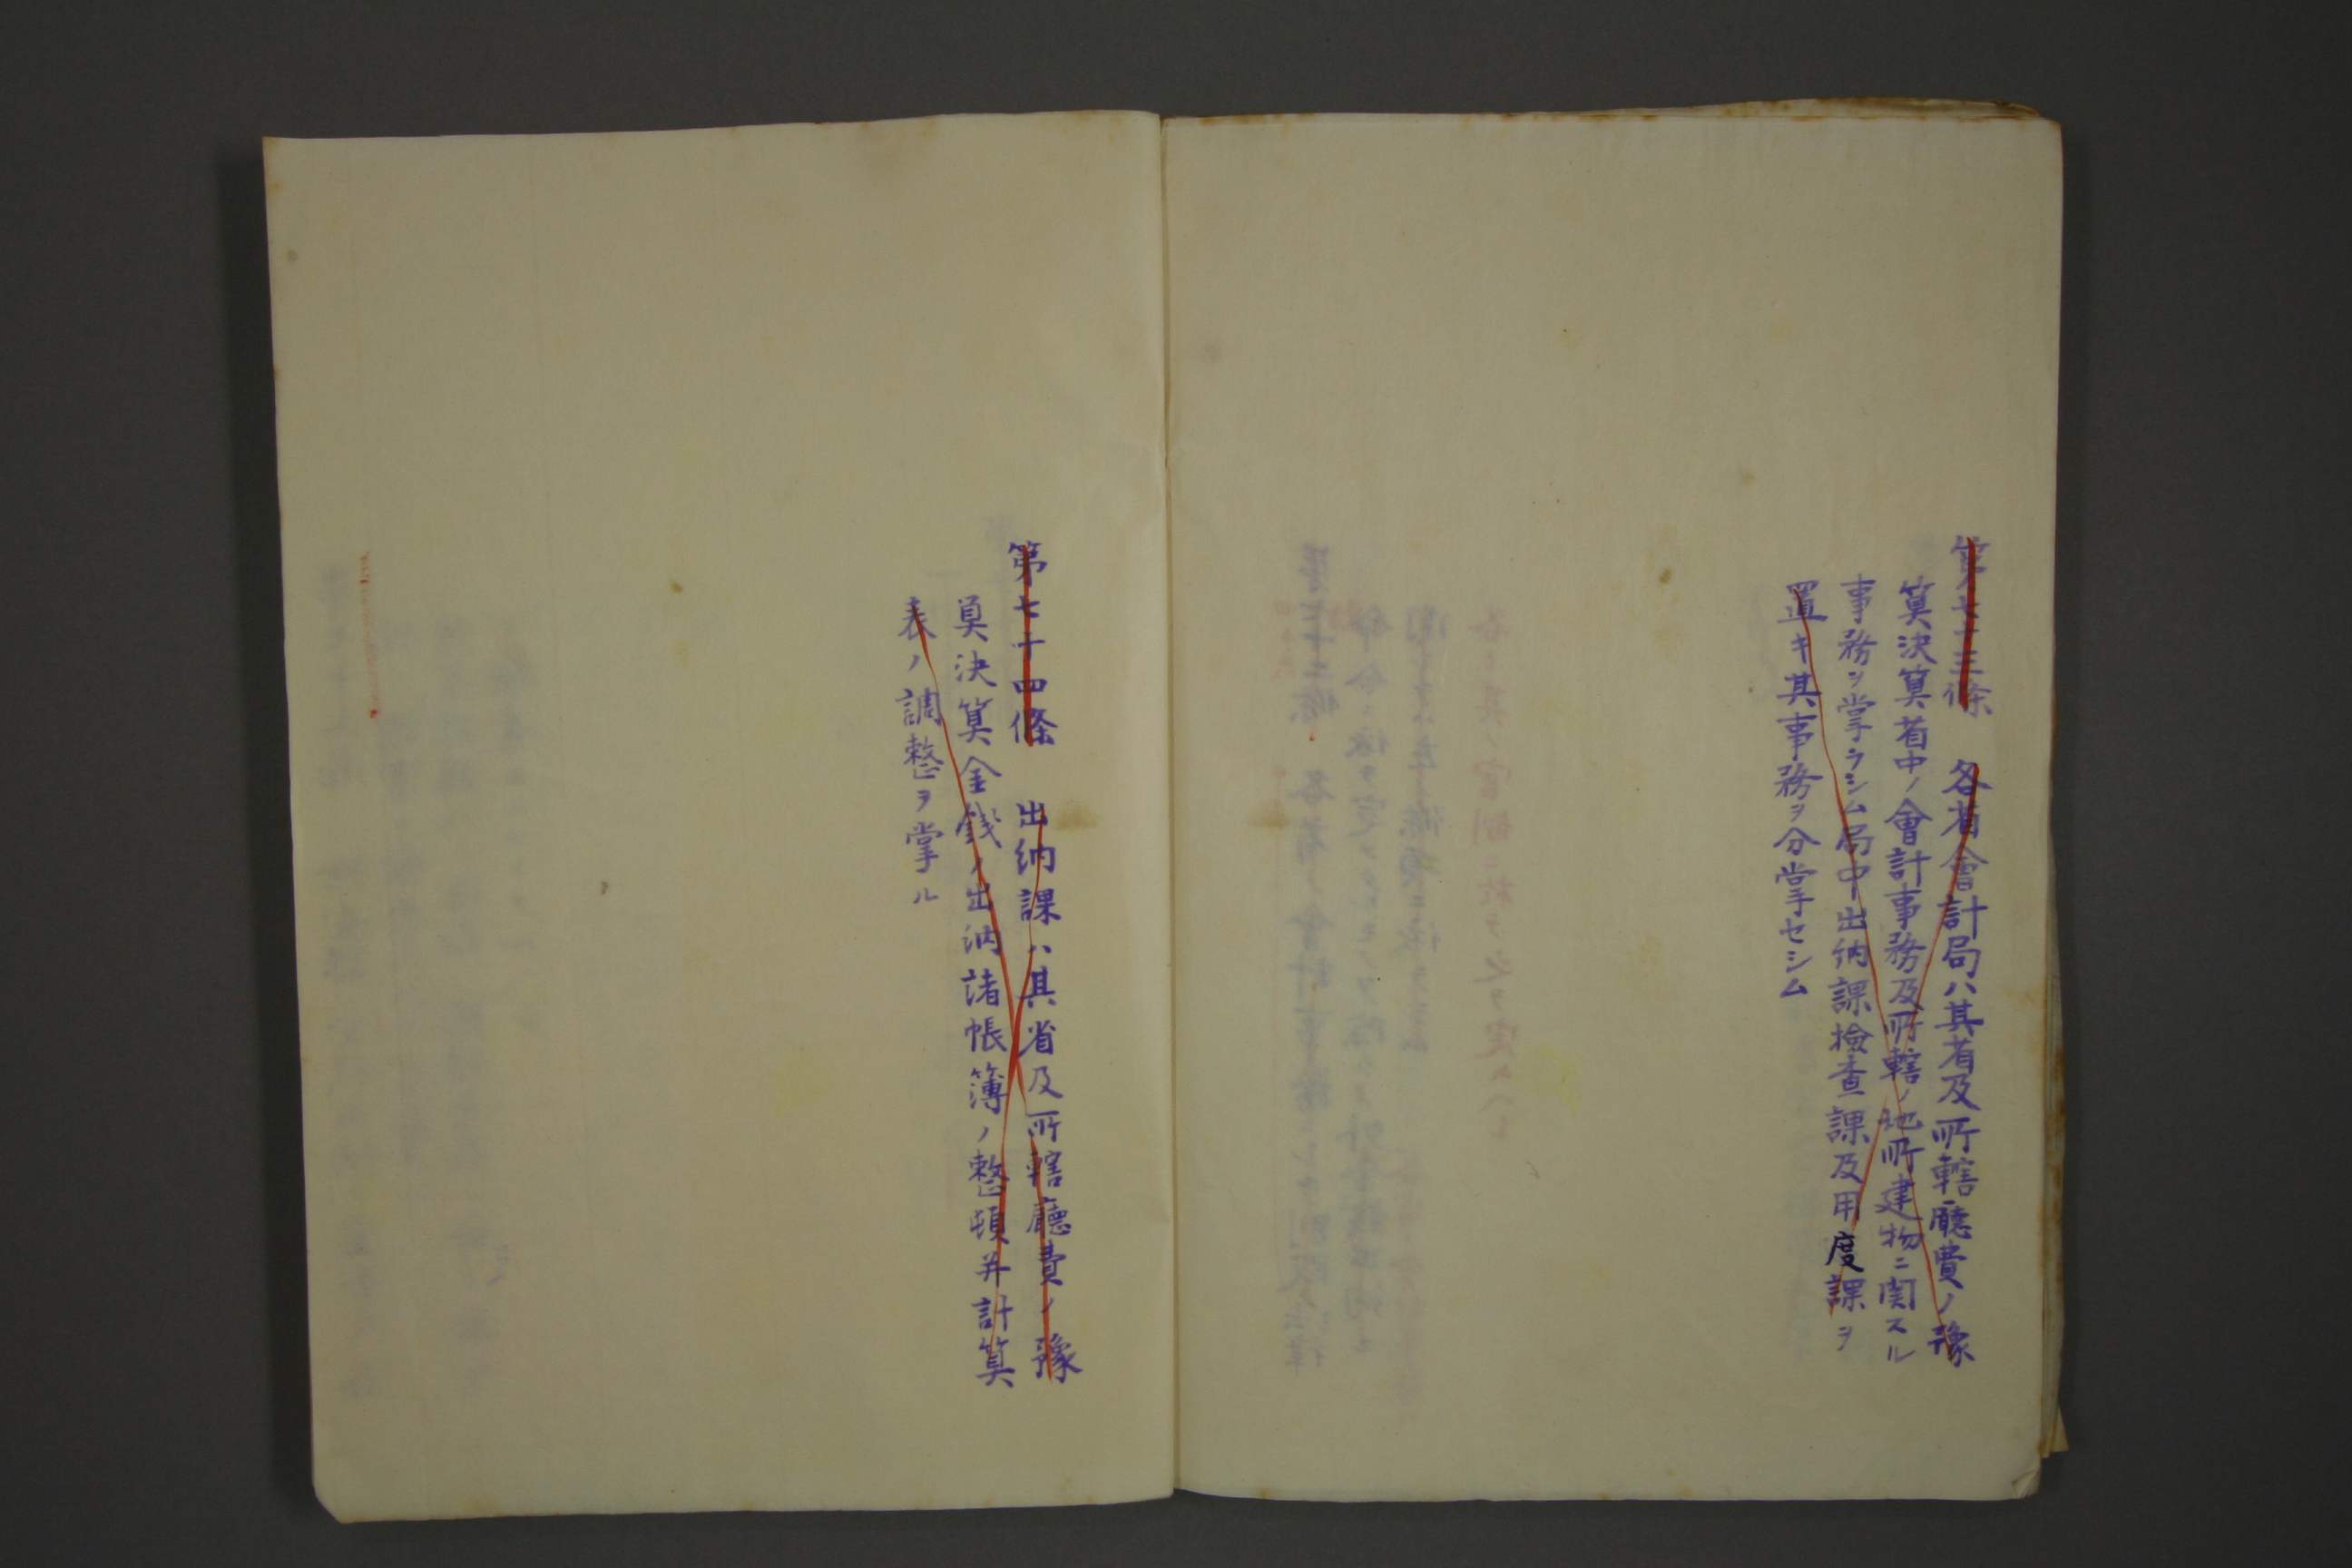 第七十三條　各省會計局ハ其省及所轄廳費ノ豫
算決算省中ノ會計事務及所轄ノ地所建物ニ関スル
事務ヲ掌ラシム局中出納課檢查課及用度課ヲ
置キ其事務ヲ分掌セシム
第七十四條　出納課ハ其省及所轄廳費ノ豫
算決算金銭ノ出納諸帳簿ノ整頓并計算
表ノ調整ヲ掌ル